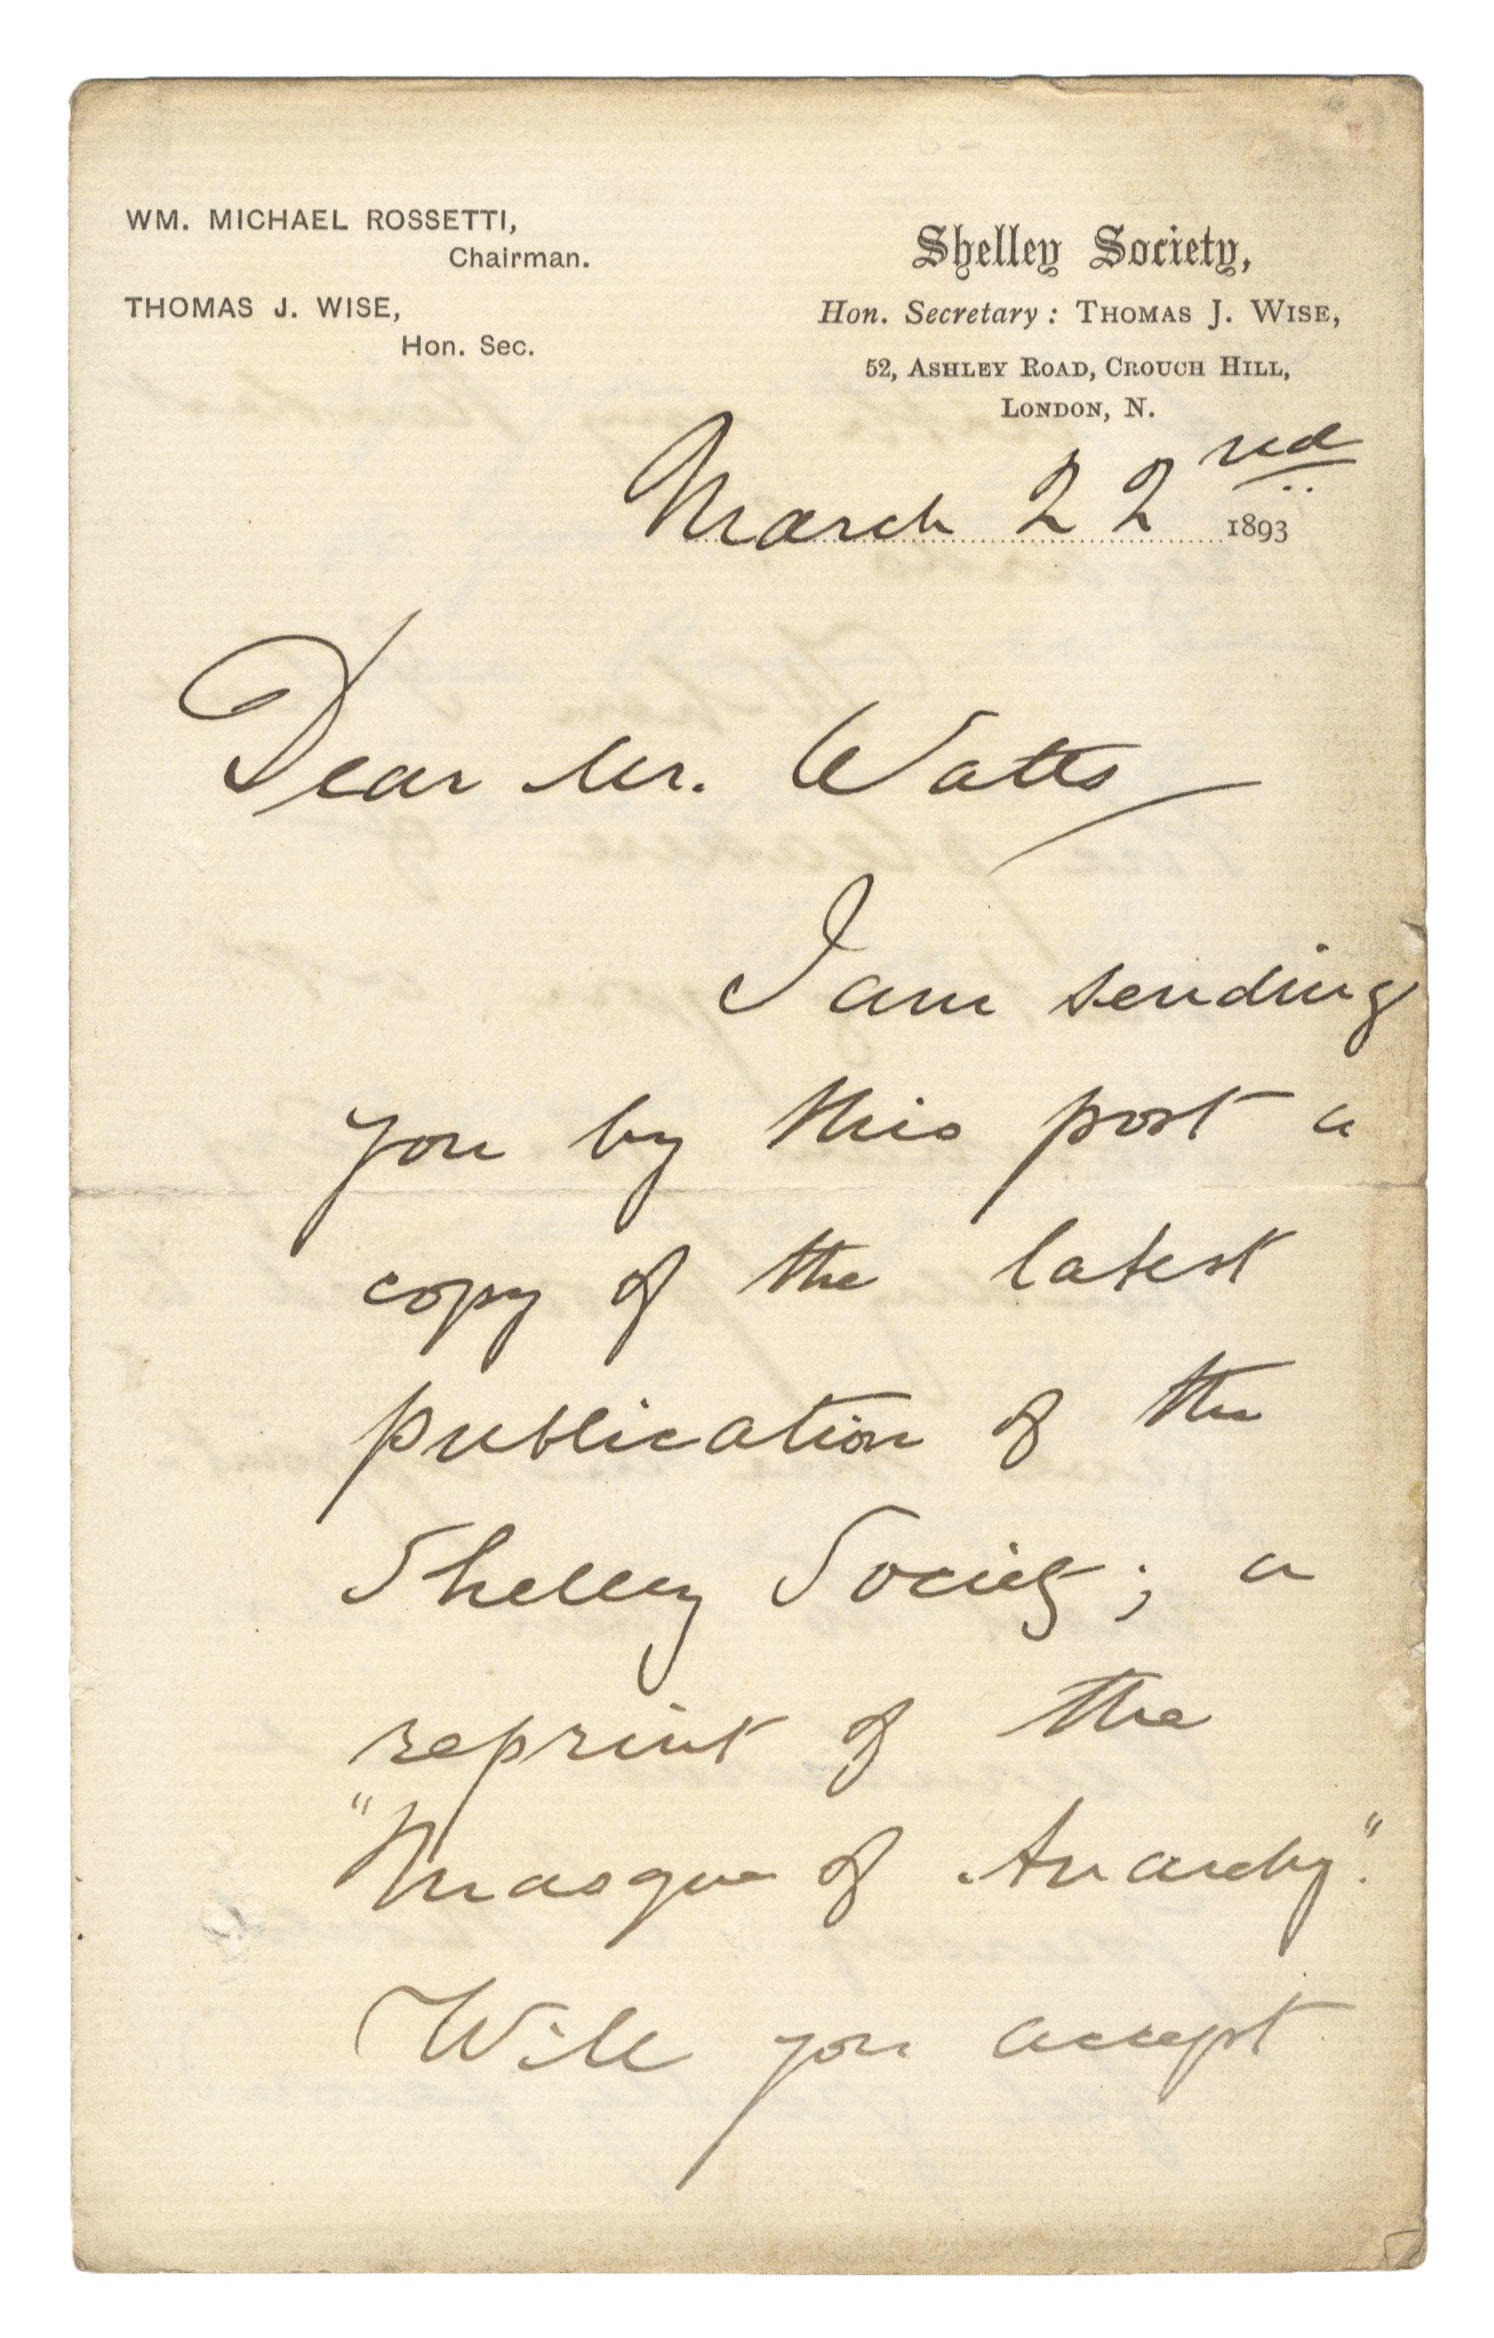 WM. MICHAEL ROSSETTI,
Chairman.
THOMAS J. WISE,
Hon. Sec.
Shelley Society,
Hon. Secretary : THOMAS J. WISE,
52, ASHLEY ROAD, CROUCH HILL,
LONDON, N.
March 22nd 1893
Dear Mr. Watts
I am sending
you by this post a
copy of the latest
publication of the
Shelley Society; a
reprint of the
"Masque of Anarchy".
Will you accept